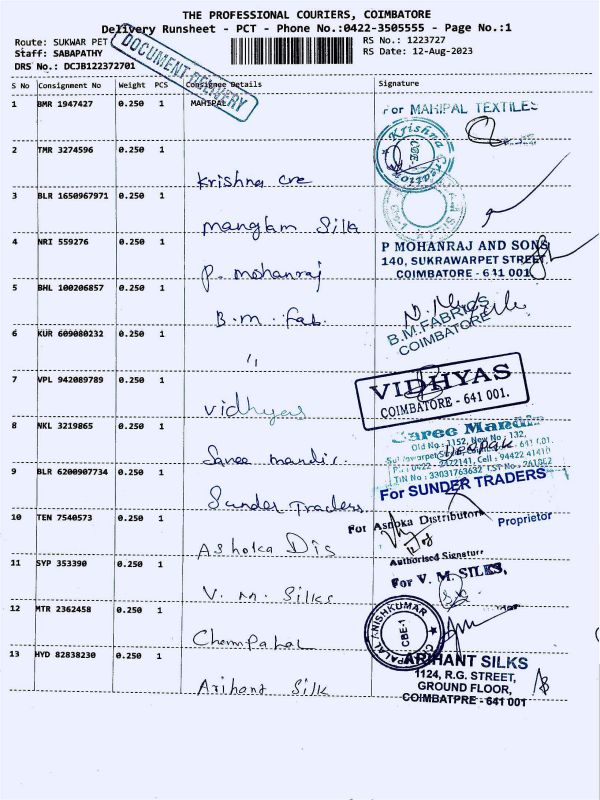 THE PROFESSIONAL COURIERS, COIMBATORE
Delivery Runsheet - PCT - Phone No.:0422-3505555 - Page No.:1
Route: SUKWAR PET
Staff: SABAPATHY
DRS No.: DCJB122372701
DOCUMENT DELIVERY
RS No.: 1223727
RS Date: 12-Aug-2023
S No Consignment No Weight PCS Consignee Details Signature
1 BMR 1947427 0.250 1 MAHIPAL
For MAHIPAL TEXTILES
2 TMR 3274596 0.250 1 Krishna cre
Krishna Creations
3 BLR 1650967971 0.250 1 manglam Silk
4 NRI 559276 0.250 1 P. mohanraj
P MOHANRAJ AND SONS
140, SUKRAWARPET STREET,
COIMBATORE - 641 001
5 BHL 100206857 0.250 1 B.m. fab.
B.M. FABRICS
COIMBATORE
6 KUR 609080232 0.250 1 "
7 VPL 942089789 0.250 1 vidhyas
VIDHYAS
COIMBATORE - 641 001.
8 NKL 3219865 0.250 1 Saree mandir.
Saree Mandir
Old No : 1152, New No : 132,
Deepak
9 BLR 6200907734 0.250 1 Sunder Traders
For SUNDER TRADERS
Proprietor
10 TEN 7540573 0.250 1 Ashoka Dis
For Ashoka Distributors
Authorised Signature
11 SYP 353390 0.250 1 V. m. Silks
For V. M. SILKS,
12 MTR 2362458 0.250 1 Champalal
CHAMPALAL ANISHKUMAR
CBE-1
13 HYD 82838230 0.250 1 Arihant Silk
ARIHANT SILKS
1124, R.G. STREET,
GROUND FLOOR,
COIMBATPRE - 641 001